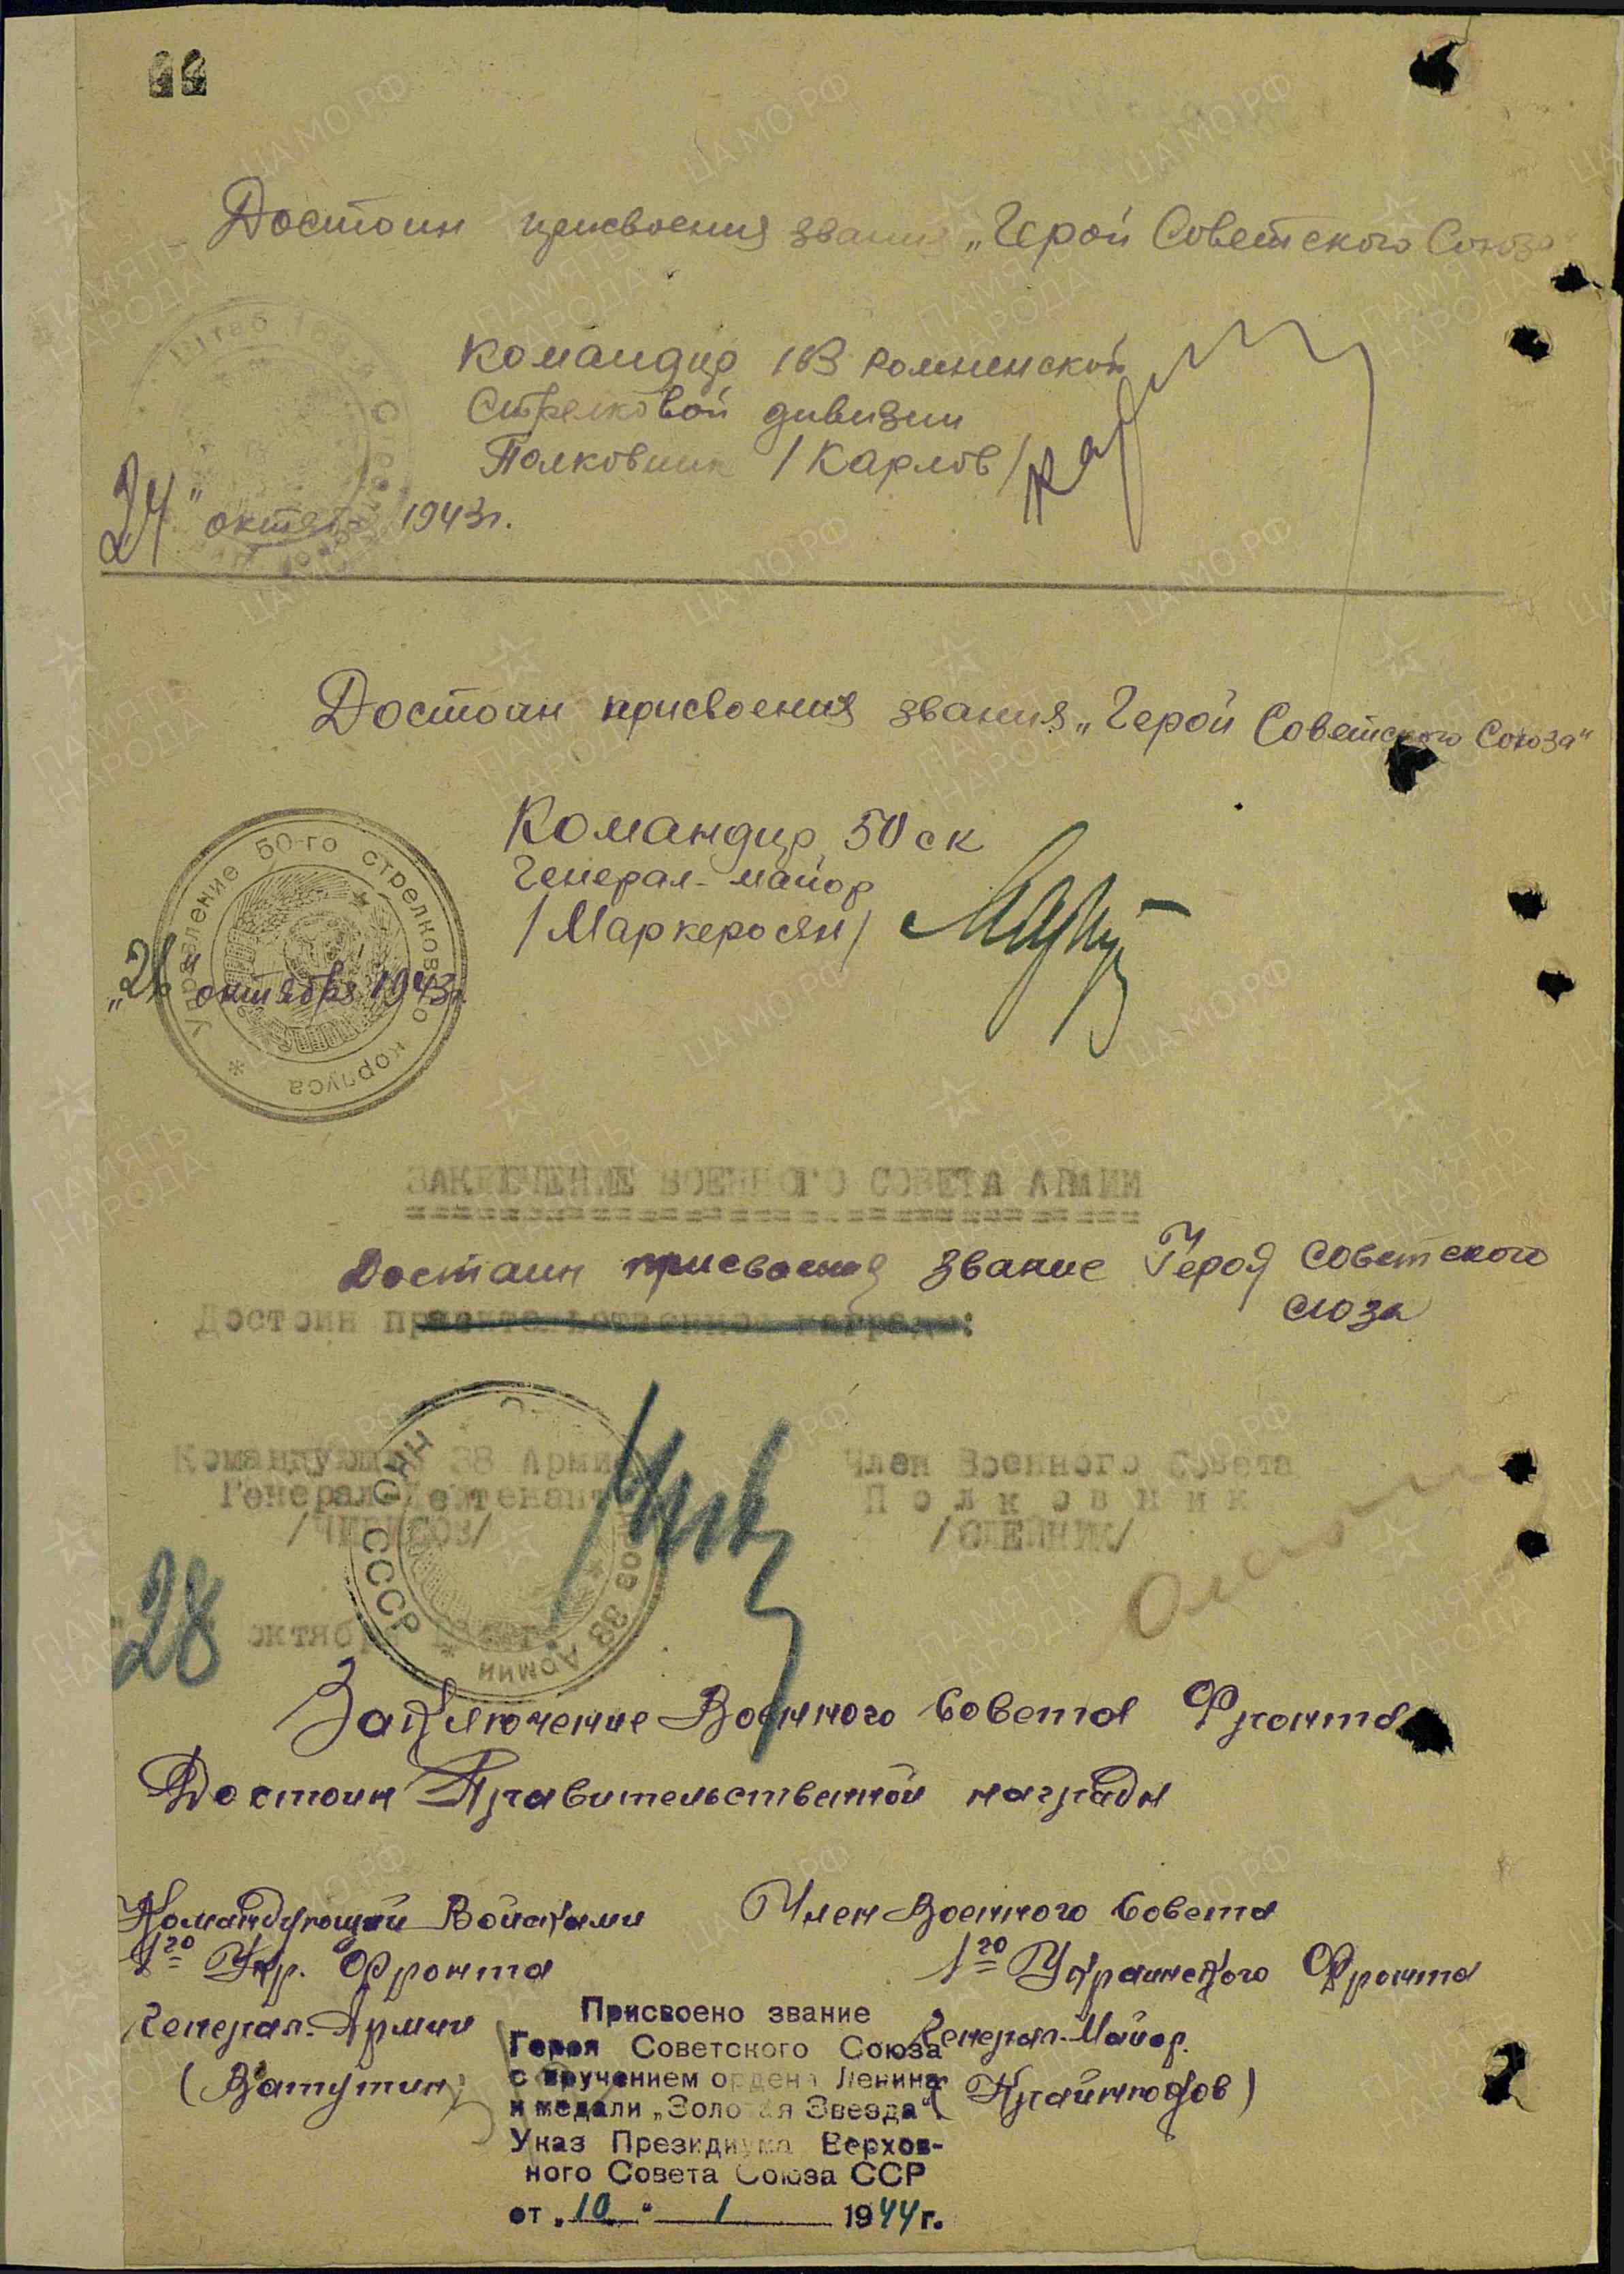 Достоин присвоения звания „Герой Советского Союза"
Командир 163 Ромненской
Стрелковой дивизии
Полковник /Карлов/
24" октября 1943г.
Достоин присвоения звания „Герой Советского Союза"
Командир 50 ск
Генерал-майор
/Маркеросян/
Управление 50-го стрелкового корпуса
„26" октября 1943г.
ЗАКЛЮЧЕНИЕ ВОЕННОГО СОВЕТА АРМИИ
Достоин присвоения звание Героя Советского
союза
Достоин правительственной награды:
Командующий 38 Армией
Генерал-Лейтенант
/ЧИБИСОВ/
Член Военного Совета
Полковник
/ОЛЕЙНИК/
НКО СССР
38 Армии
28 октября
Заключение Военного Совета Фронта
Достоин Правительственной награды
Командующий Войсками
1го Укр. Фронта
Генерал-Армии
(Ватутин)
Член Военного Совета
1го Украинского Фронта
Генерал-Майор.
(Крайнюков)
Присвоено звание
Героя Советского Союза
с вручением ордена Ленина
и медали „Золотая Звезда"
Указ Президиума Верхов-
ного Совета Союза ССР
от „10" 1 1944 г.
ПАМЯТЬ НАРОДА
ЦАМО.РФ